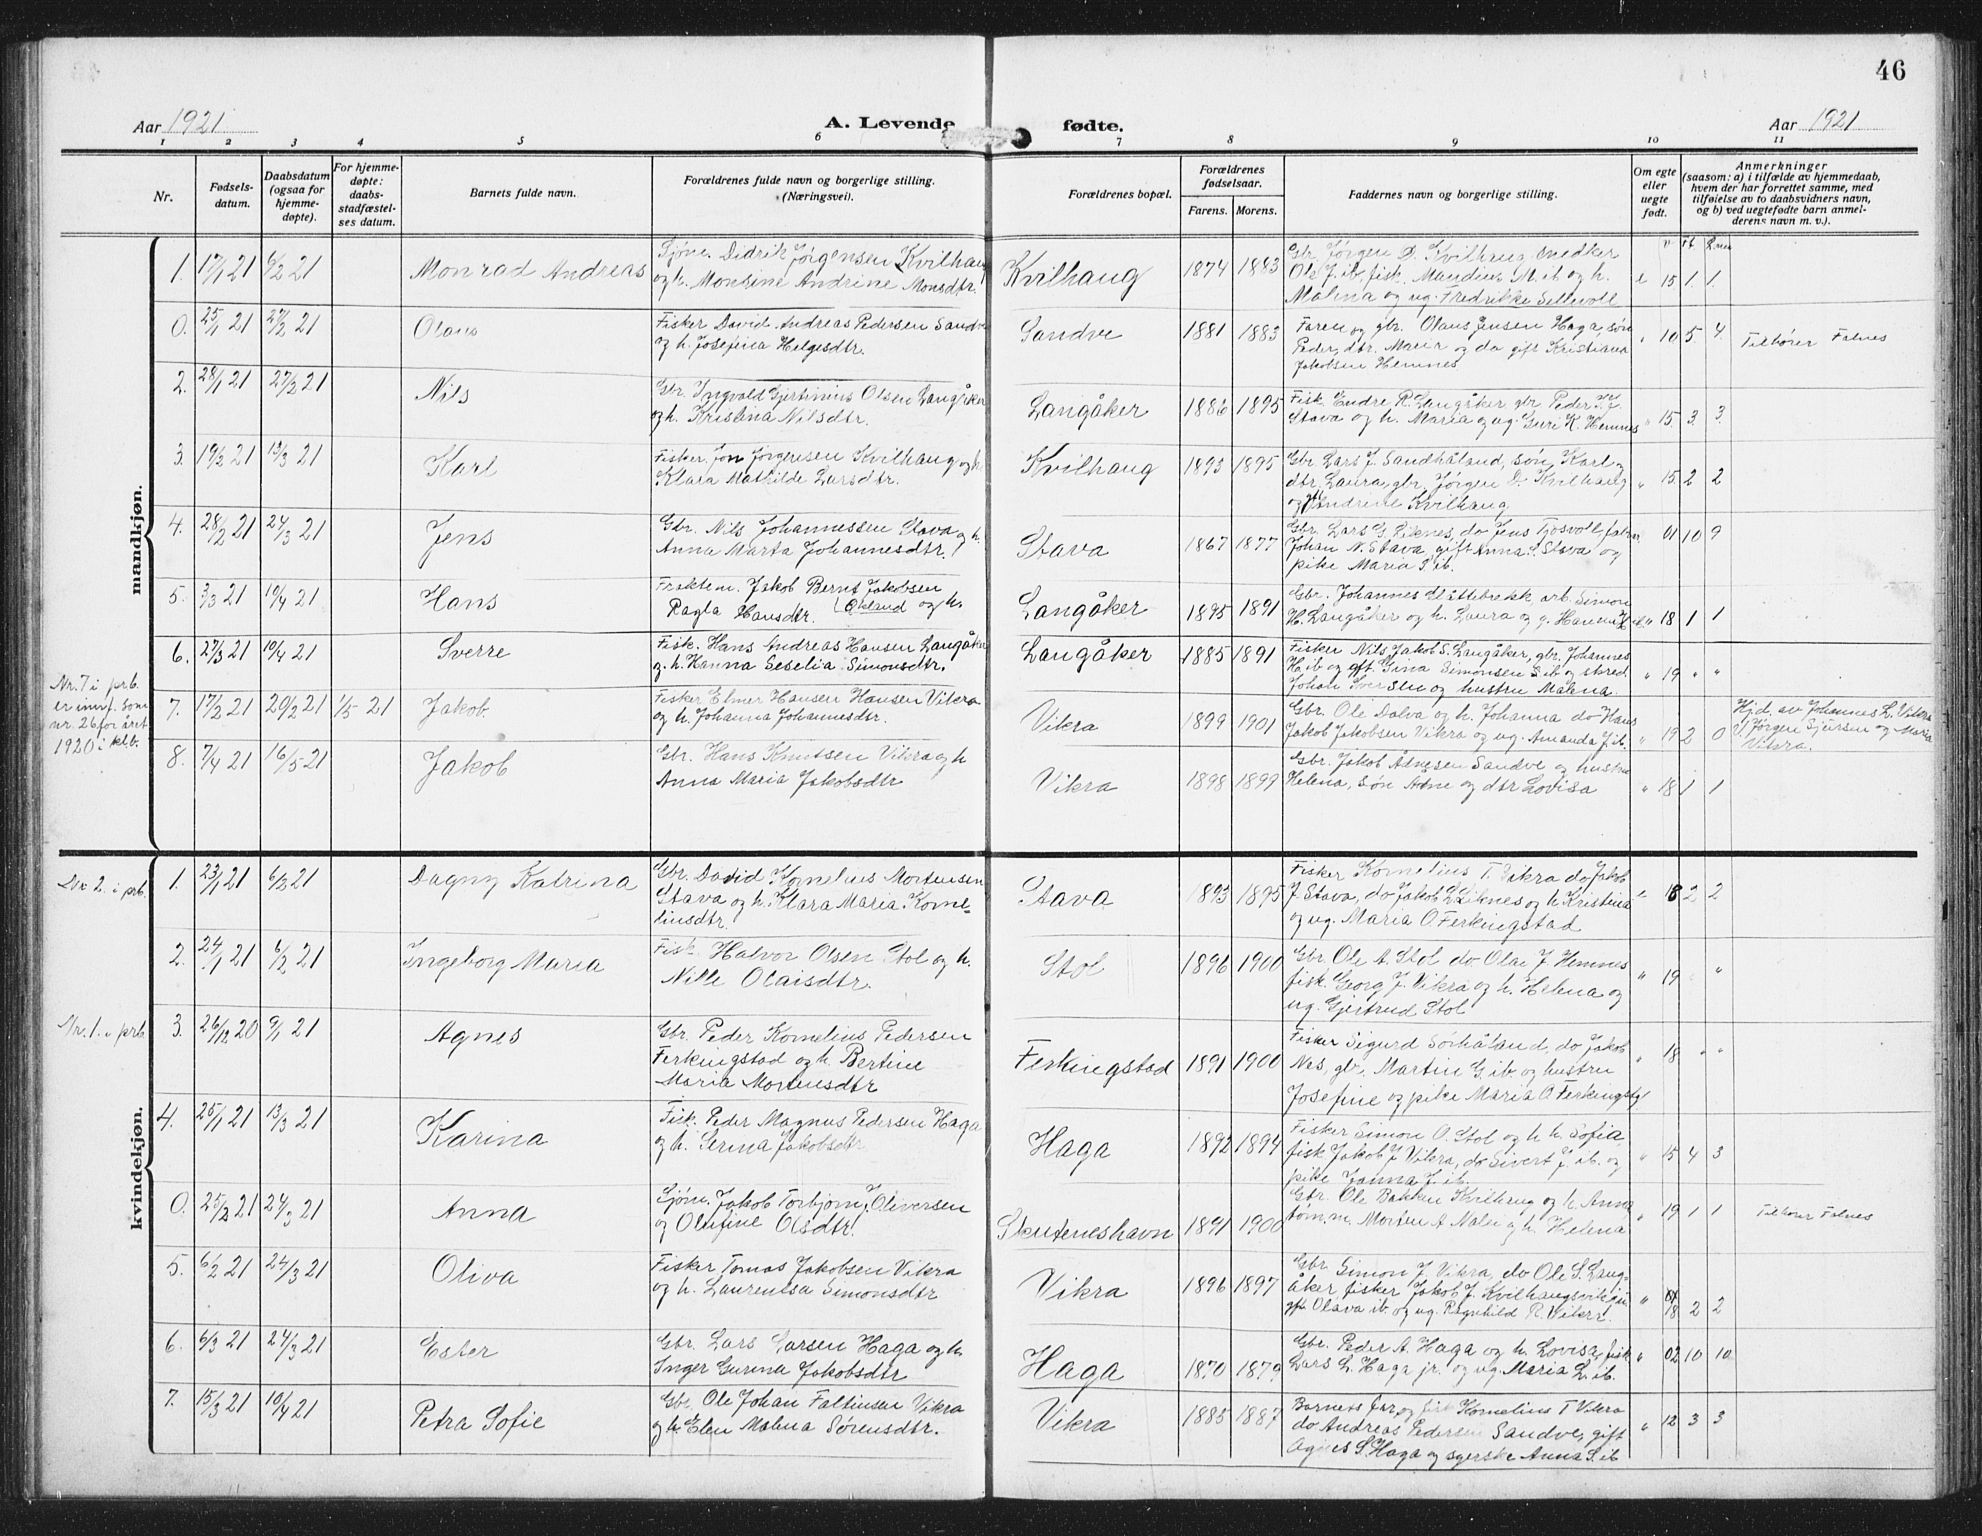 46
Aar 1921
A. Levende
fødte.
Aar 1921
1 2 3 4 5 6 7 8 9 10 11
Nr.
Fødsels-
datum.
Daabsdatum
(ogsaa for
hjemme-
døpte).
For hjemme-
døpte:
daabs-
stadfæstel-
ses datum.
Barnets fulde navn.
Forældrenes fulde navn og borgerlige stilling.
(Næringsvei).
Forældrenes bopæl.
Forældrenes
fødselsaar.
Farens. Morens.
Faddernes navn og borgerlige stilling.
Om egte
eller
uegte
født.
Anmerkninger
(saasom: a) i tilfælde av hjemmedaab,
hvem der har forrettet samme, med
tilføielse av to daabsvidners navn,
og b) ved uegtefødte barn anmel-
derens navn m. v.).
mandkjøn.
1. 17/1 21 6/2 21 Monrad Andreas
Sjøm. Didrik Jørgensen Kvilhaug
og h. Monsine Andrine Monsdtr.
Kvilhaug 1874 1883
Gbr. Jørgen D. Kvilhaug
Malena og ug. Fredrikke Sellevoll
15 1. 1.
0. 25/1 21 27/2 21 Olaus
Fisker David Andreas Pedersen Sandve
og h. Josefina Helgesdtr.
Sandve 1881 1883
Faren og gbr. Olaus Jensen Haga, søn
Peder, dtr. Maria og do gift Kristiana
Jakobsen Hemnes
" 10 5. 4. Tilhører Falnes
2. 28/1 21 27/2 21 Nils
Gbr. Ingvald Gjertinius Olsen Langåker
og h. Kristina Nilsdtr.
Langåker 1886 1895
Fisk. Endre R. Langåker gbr Peder
Stava og h. Maria og ug. Guri K. Hemnes
" 15 3. 3.
3. 19/2 21 13/3 21 Karl
Fisker Jon Jørgensen Kvilhaug og h.
Klara Mathilde Larsdtr.
Kvilhaug 1893 1895
Gbr Lars J. Sandhåland, søn Karl og
dtr. Laura, gbr. Jørgen D. Kvilhaug
og Andrine Kvilhaug
" 15 2 2
4. 28/2 21 24/3 21 Jens
Gbr. Nils Johannessen Stava og h.
Anna Marta Johannesdtr.
Stava 1867 1877
Gbr. Lars G. Liknes, do Jens Tjosvoll,
Johan N. Stava, gift Anna S. Stava og
pike Maria S. ib.
01 10 9
5. 3/3 21 10/4 21 Hans
Fraktem. Jakob Bernt Jakobsen
Ragla Hansdtr. Økland og h.
Langåker 1895 1891
Gbr. Johannes Slåttebrekk arb. Simon
H. Langåker og h. Laura og g. Hanna
" 18 1 1
6. 27/3 21 10/4 21 Sverre
Fisk. Hans Andreas Hansen Langåker
og h. Hanna Seselia Simonsdtr.
Langåker 1885 1891
Fisker Nils Jakob S. Langåker, gbr. Johannes
H. ib og gft. Gina Simonsen S. ib og
Johan Iversen og hustru Malena
" 19 " "
Nr. 7 i prb.
er innf. som
nr. 26 for året
1920 i klb.
7. 17/2 21 20/2 21 1/5 21 Jakob
Fisker Elmer Hansen Hansen Vikra
og h. Johanna Johannesdtr.
Vikra 1899 1901
Gbr. Ole Dalva og h. Johanna do Hans
Jakob Jakobsen Vikra og ug. Amanda J. ib.
" 19 2 0
Hj.d. av Johannes L. Vikra
V. Jørgen Sjursen og Maria
Vikra.
8. 7/4 21 16/5 21 Jakob
Gbr. Hans Knutsen Vikra og h
Anna Maria Jakobsdtr
Vikra 1898 1899
Gbr. Jakob Adnesen Sandve og hustru
Helena, søn Adne og dtr Lovisa
" 18 1 1
kvindekjøn.
Nr 2. i prb.
1. 23/1 21 6/2 21 Dagny Katrina
Gbr. David Kornelius Mortensen
Stava og h. Klara Maria Korne-
liusdtr.
Stava 1893 1895
Fisker Kornelius T. Vikra do Jakob
J. Stava, do Jakob L. Liknes og h. Kristina
og ug. Maria O. Ferkingstad
" 18 2 2
2. 24/1 21 6/2 21 Ingeborg Maria
Fisk. Halvor Olsen Stol og h.
Nille Olaisdtr.
Stol 1896 1900
Gbr. Ole A. Stol do Olai J. Hemnes
fisk. Georg J. Vikra og h. Helena og
ug. Gjertrud Stol
" 19 "
Nr. 1. i prb
3. 26/12 20 9/1 21 Agnes
Gbr. Peder Kornelius Pedersen
Ferkingstad og h. Bertine
Maria Mortensdtr
Ferkingstad 1891 1900
Fisker Sigurd Sørhåland, do Jakob
Nes, gbr. Martin G. ib og hustru
Josefine og pike Maria O. Ferkingst.
" 18 " "
4. 25/1 21 13/3 21 Karina
Fisk. Peder Magnus Pedersen Haga
og h. Serina Jakobsdtr
Haga 1892 1894
Fisker Simon O. Stol og h. Sofia
fisk Jakob J. Vikra, do Sivert J. ib. og
pike Janna J. ib.
" 15 4 3
0. 25/2 21 24/3 21 Anna
Sjøm. Jakob Torbjørn J. Oliversen
og Olefine Olsdtr.
Skuteneshavn 1891 1900
Gbr. Ole Bakken Kvilhaug og h. Anna
tømm. Morten A Nolu og h. Helena
" 19 1 1 Tilhører Falnes
5. 6/2 21 24/3 21 Oliva
Fisker Tomas Jakobsen Vikra
og h. Laurentsa Simonsdtr
Vikra 1896 1897
Gbr. Simon J. Vikra, do Ole S. Lang-
åker, fisker Jakob J. Kvilhaugsvik
gft Olava ib og ug. Ragnhild R. Vikra.
" 18 2 2
6. 6/3 21 24/3 21 Ester
Gbr. Lars Larsen Haga og h.
Inger Gurina Jakobsdtr
Haga 1870 1879
Gbr. Peder A. Haga og h. Lovisa, fisk
Lars L. Haga jr. og ug. Maria L. ib.
" 02 10 10
7. 15/3 21 10/4 21 Petra Sofie
Gbr. Ole Johan Faltinsen Vikra
og h. Elen Malena Sørensdtr.
Vikra 1885 1887
Barnets far og fisk Kornelius T Vikra
do Andreas Pedersen Sandve, gift
Agnes S. Haga og syerske Anna S. ib
" 12 3 3